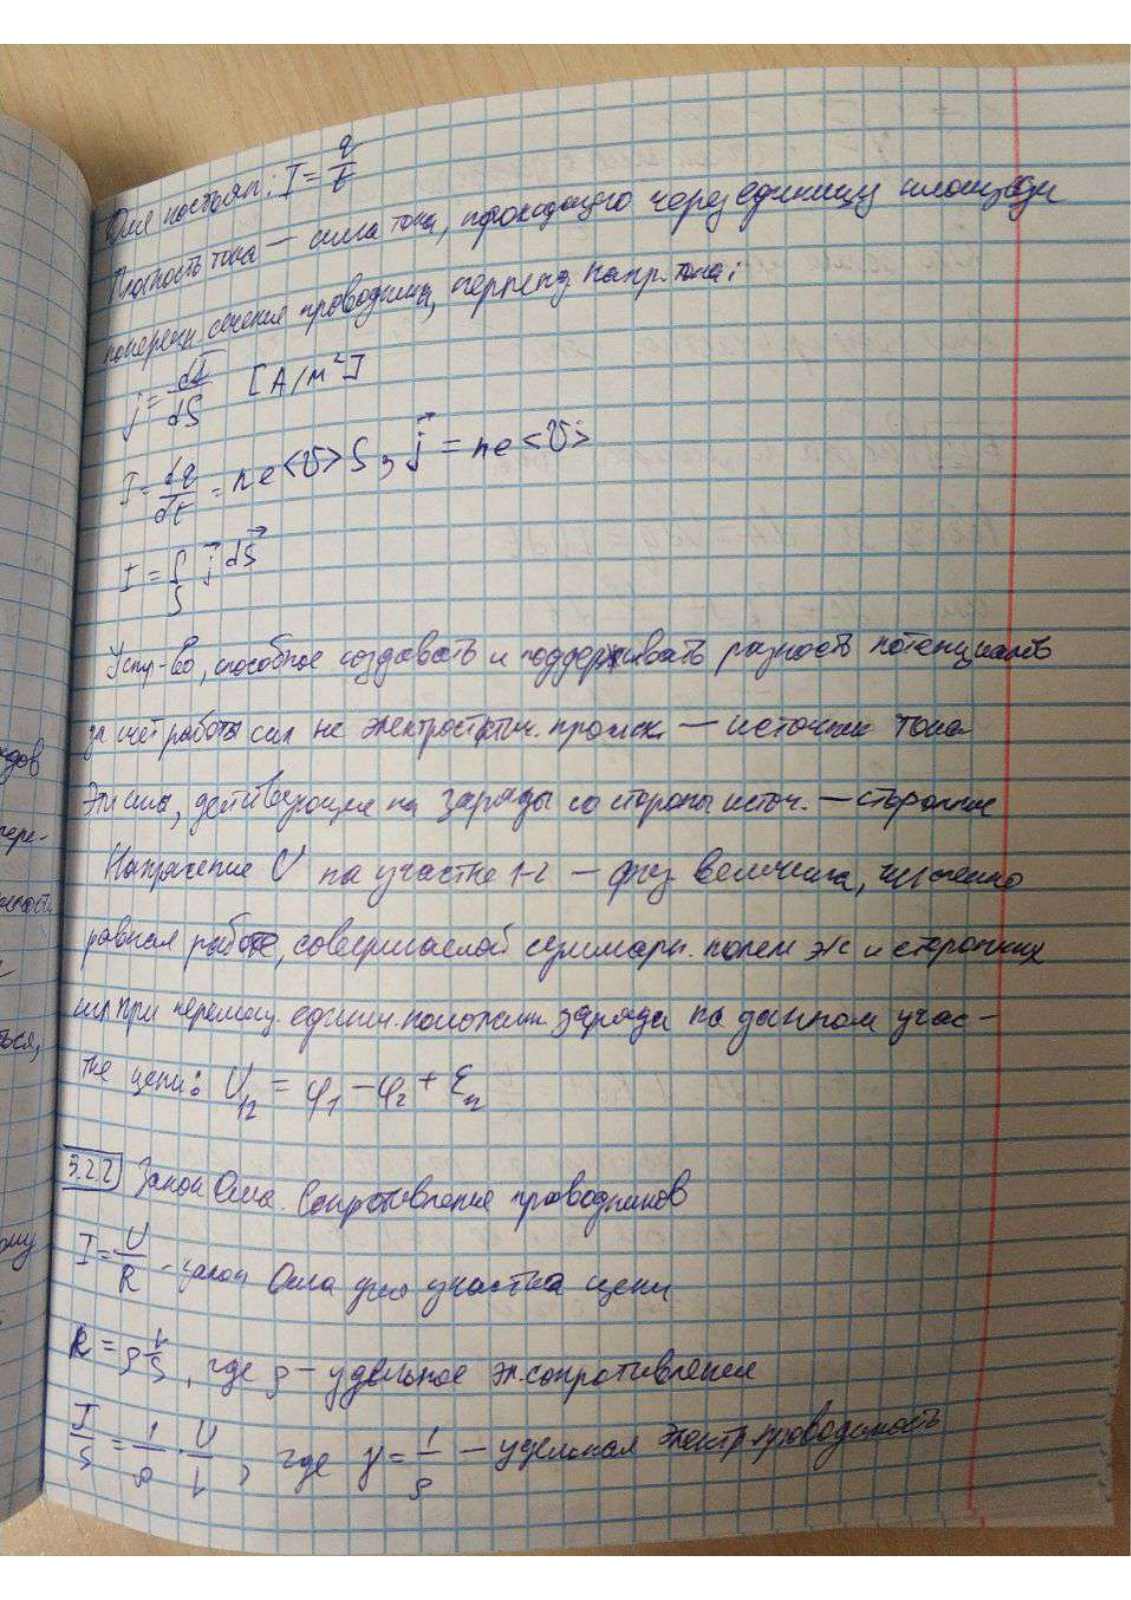 Для постоян.: I = q/t
Плотность тока — сила тока, проходящего через единицу площади
поперечн. сечения проводника, перпенд. напр. тока:
j = dI/dS [А/м²]
I = dq/dt = ne<v>S, j⃗ = ne<v⃗>
I = ∫_S j⃗ dS⃗
Устр-во, способное создавать и поддерживать разность потенциалов
за счёт работы сил не электростатич. происх. — источник тока
Эти силы, действующие на заряды со стороны источ. — сторонние
Напряжение U на участке 1-2 — физ величина, численно
равная работе, совершаемой суммарн. полем эл и сторонних
сил при перемещ. единич. положит. заряда на данном учас-
тке цепи: U₁₂ = φ₁ - φ₂ + ε₁₂
3.2.2 Закон Ома. Сопротивление проводников
I = U/R - закон Ома для участка цепи
R = ρ l/S, где ρ — удельное эл. сопротивление
I/S = 1/ρ · U/l, где γ = 1/ρ — удельная электр. проводимость
ходов
пере-
ться,
ому